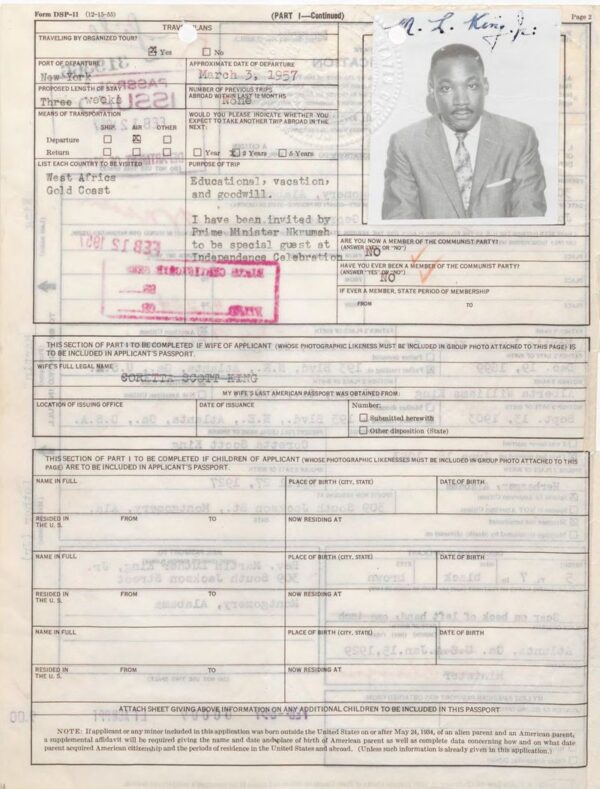 Form DSP-11 (12-15-55)
(PART I—Continued)
Page 2
M. L. King, Jr.
TRAVEL PLANS
TRAVELING BY ORGANIZED TOUR?
Yes
No
PORT OF DEPARTURE
New York
APPROXIMATE DATE OF DEPARTURE
March 3, 1957
PROPOSED LENGTH OF STAY
Three weeks
NUMBER OF PREVIOUS TRIPS
ABROAD WITHIN LAST 12 MONTHS
None
MEANS OF TRANSPORTATION
SHIP AIR OTHER
Departure
Return
WOULD YOU PLEASE INDICATE WHETHER YOU
EXPECT TO TAKE ANOTHER TRIP ABROAD IN THE
NEXT:
Year 2 Years 5 Years
LIST EACH COUNTRY TO BE VISITED
West Africa
Gold Coast
PURPOSE OF TRIP
Educational, vacation,
and goodwill.
I have been invited by
Prime Minister Nkrumah
to be special guest at
Independence Celebration
FEB 12 1957
ARE YOU NOW A MEMBER OF THE COMMUNIST PARTY?
(ANSWER "YES" OR "NO")
NO
HAVE YOU EVER BEEN A MEMBER OF THE COMMUNIST PARTY?
(ANSWER "YES" OR "NO")
NO
IF EVER A MEMBER, STATE PERIOD OF MEMBERSHIP
FROM TO
THIS SECTION OF PART I TO BE COMPLETED IF WIFE OF APPLICANT (WHOSE PHOTOGRAPHIC LIKENESS MUST BE INCLUDED IN GROUP PHOTO ATTACHED TO THIS PAGE) IS
TO BE INCLUDED IN APPLICANT'S PASSPORT.
WIFE'S FULL LEGAL NAME
CORETTA SCOTT KING
MY WIFE'S LAST AMERICAN PASSPORT WAS OBTAINED FROM:
LOCATION OF ISSUING OFFICE
DATE OF ISSUANCE
Number:
Submitted herewith
Other disposition (State)
THIS SECTION OF PART I TO BE COMPLETED IF CHILDREN OF APPLICANT (WHOSE PHOTOGRAPHIC LIKENESSES MUST BE INCLUDED IN GROUP PHOTO ATTACHED TO THIS
PAGE) ARE TO BE INCLUDED IN APPLICANT'S PASSPORT.
NAME IN FULL
PLACE OF BIRTH (CITY, STATE)
DATE OF BIRTH
RESIDED IN
THE U. S.
FROM TO
NOW RESIDING AT
NAME IN FULL
PLACE OF BIRTH (CITY, STATE)
DATE OF BIRTH
RESIDED IN
THE U. S.
FROM TO
NOW RESIDING AT
NAME IN FULL
PLACE OF BIRTH (CITY, STATE)
DATE OF BIRTH
RESIDED IN
THE U. S.
FROM TO
NOW RESIDING AT
ATTACH SHEET GIVING ABOVE INFORMATION ON ANY ADDITIONAL CHILDREN TO BE INCLUDED IN THIS PASSPORT
NOTE: If applicant or any minor included in this application was born outside the United States on or after May 24, 1934, of an alien parent and an American parent,
a supplemental affidavit will be required giving the name and date and place of birth of American parent as well as complete data concerning how and on what date
parent acquired American citizenship and the periods of residence in the United States and abroad. (Unless such information is already given in this application.)